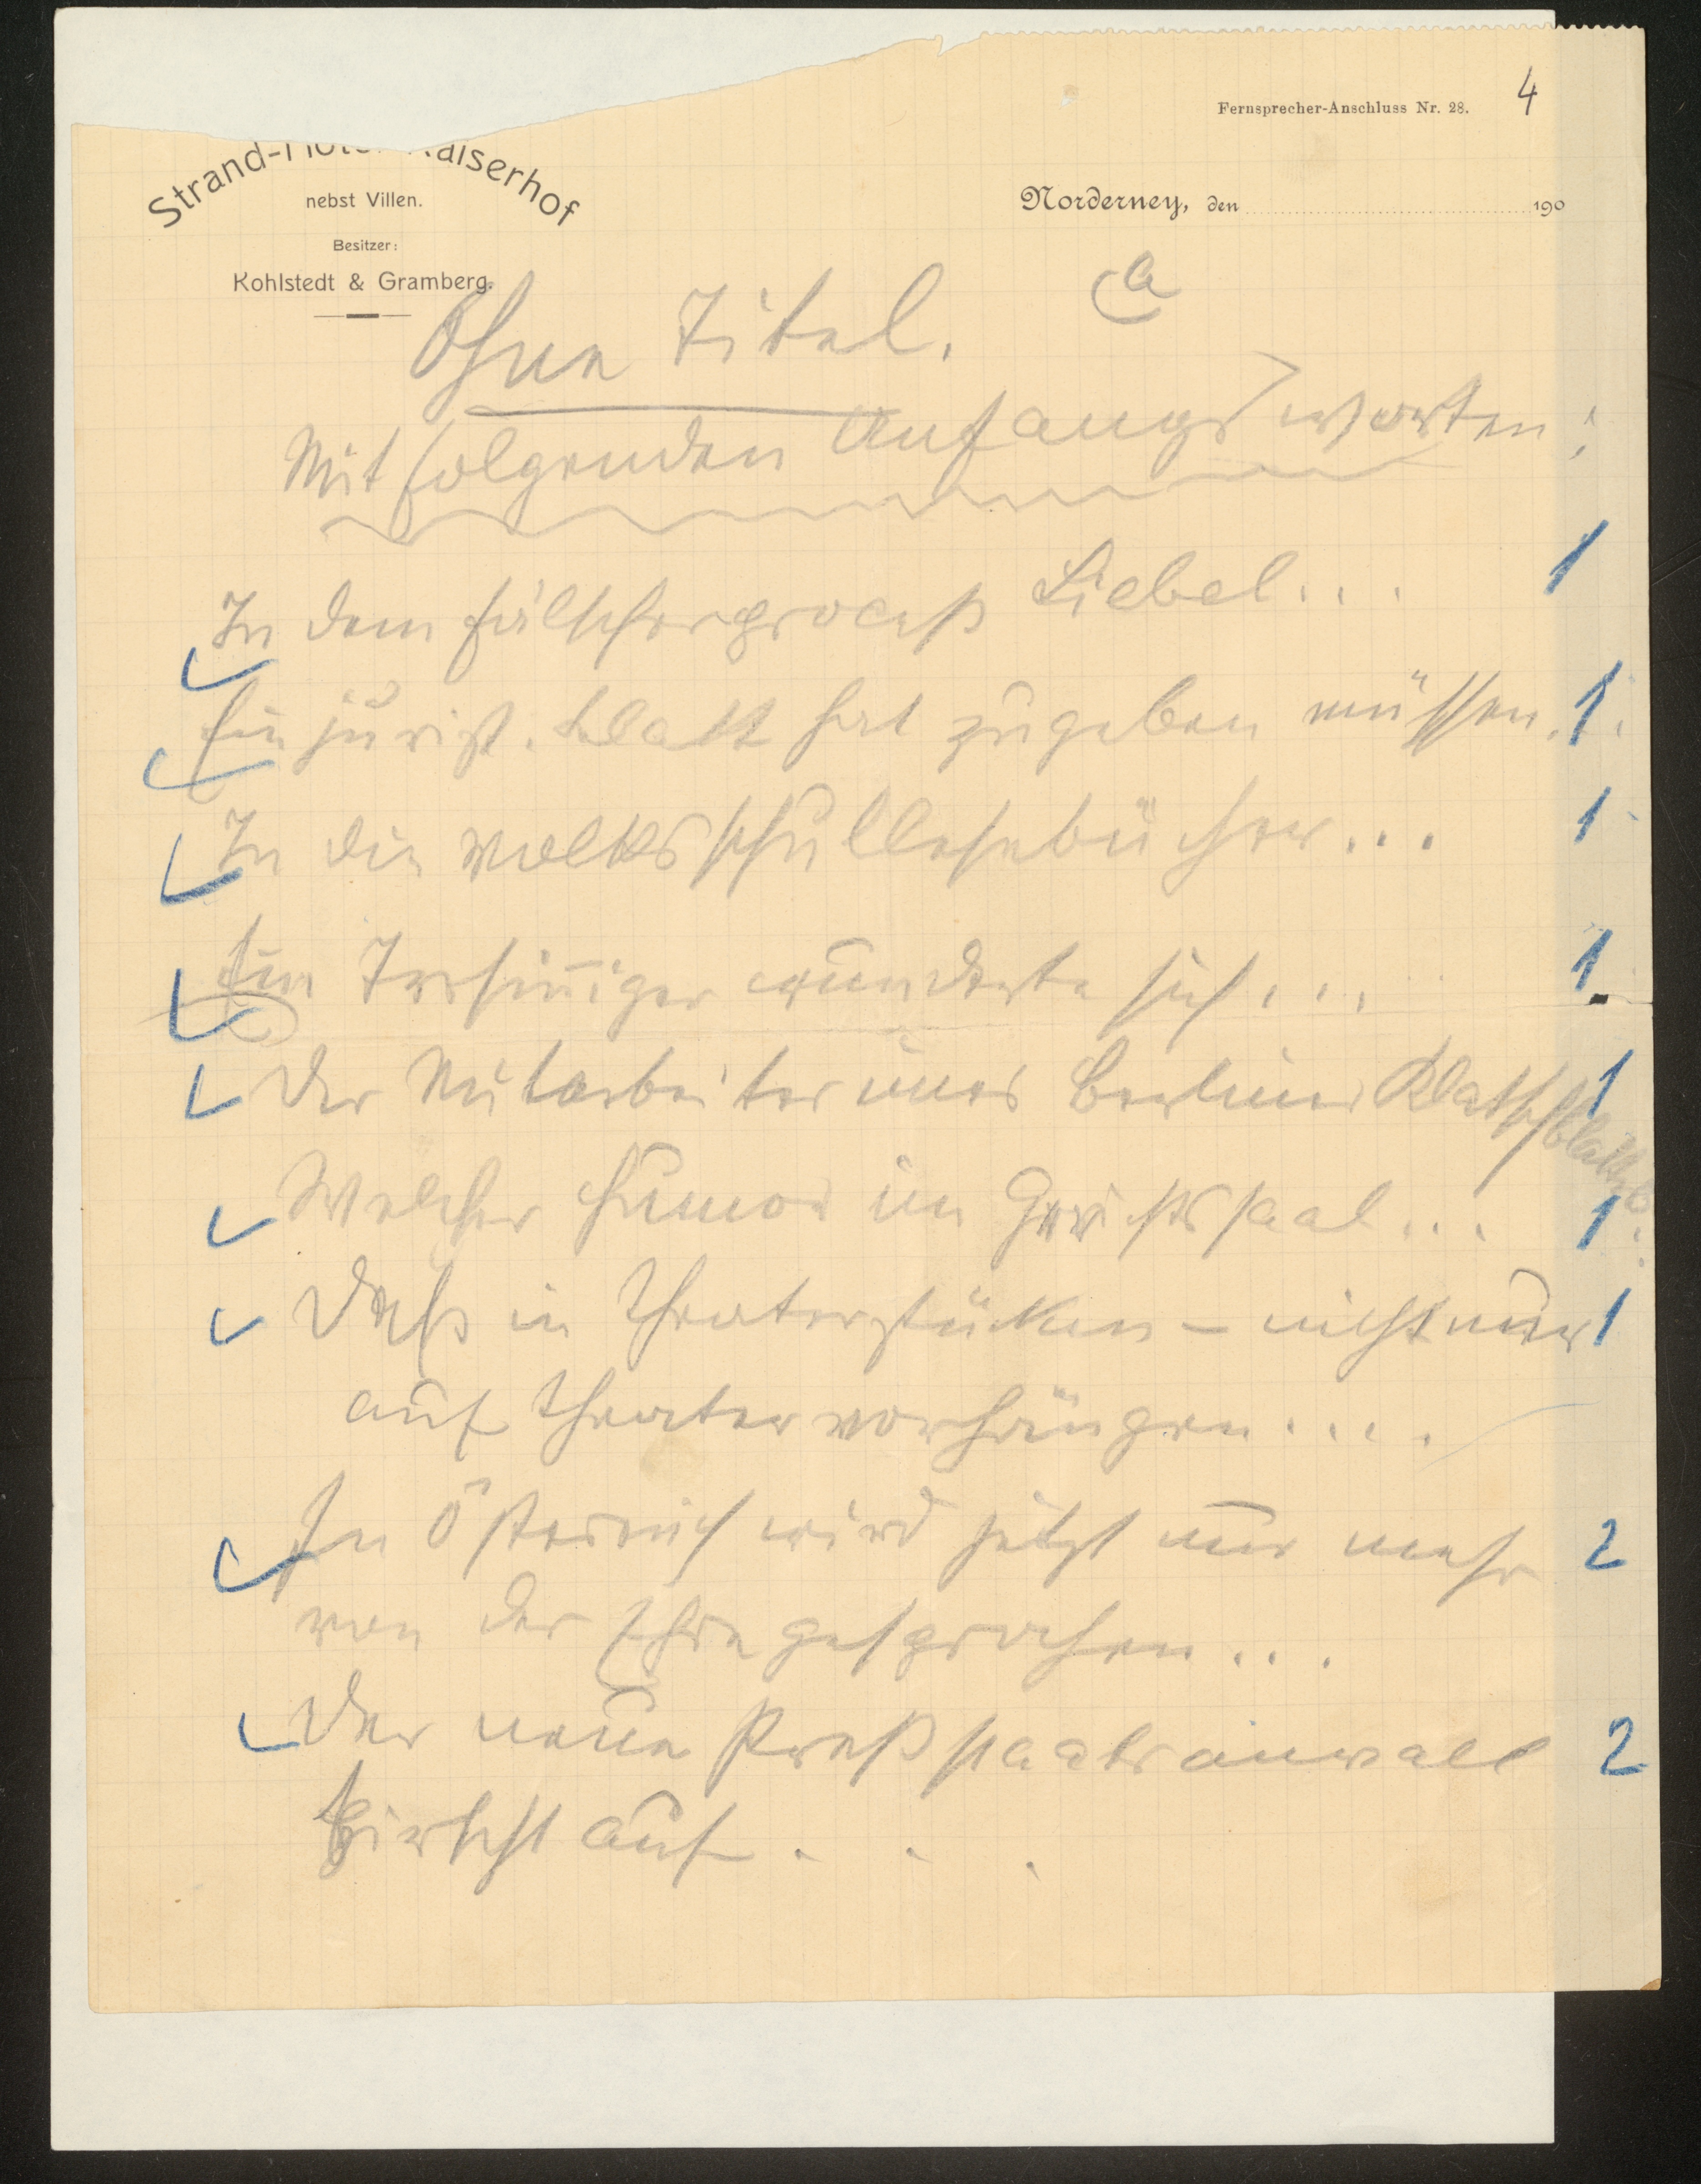 Fernsprecher-Anschluss Nr. 28.
4
Strand-Hotel Kaiserhof
nebst Villen.
Norderney, den 190
Besitzer:
Kohlstedt & Gramberg.
a
Ohne Titel.
Mit folgenden Anfangsworten:
In dem Fälscherproceß Liebel... 1
Ein jurist. Blatt hat zugeben müssen... 1
In die Volksschullesebücher... 1
Ein Irrsinniger wunderte sich... 1
Der Mitarbeiter eines Berliner Klatschblatts 1
Welcher Humor im Gerichtssaal... 1
Daß in Theaterstücken – nicht nur 1
auf Theatervorhängen....
In Österreich wird jetzt nur mehr 2
von der Ehre gesprochen...
Der neue Preßstaatsanwalt 2
pirscht auf...